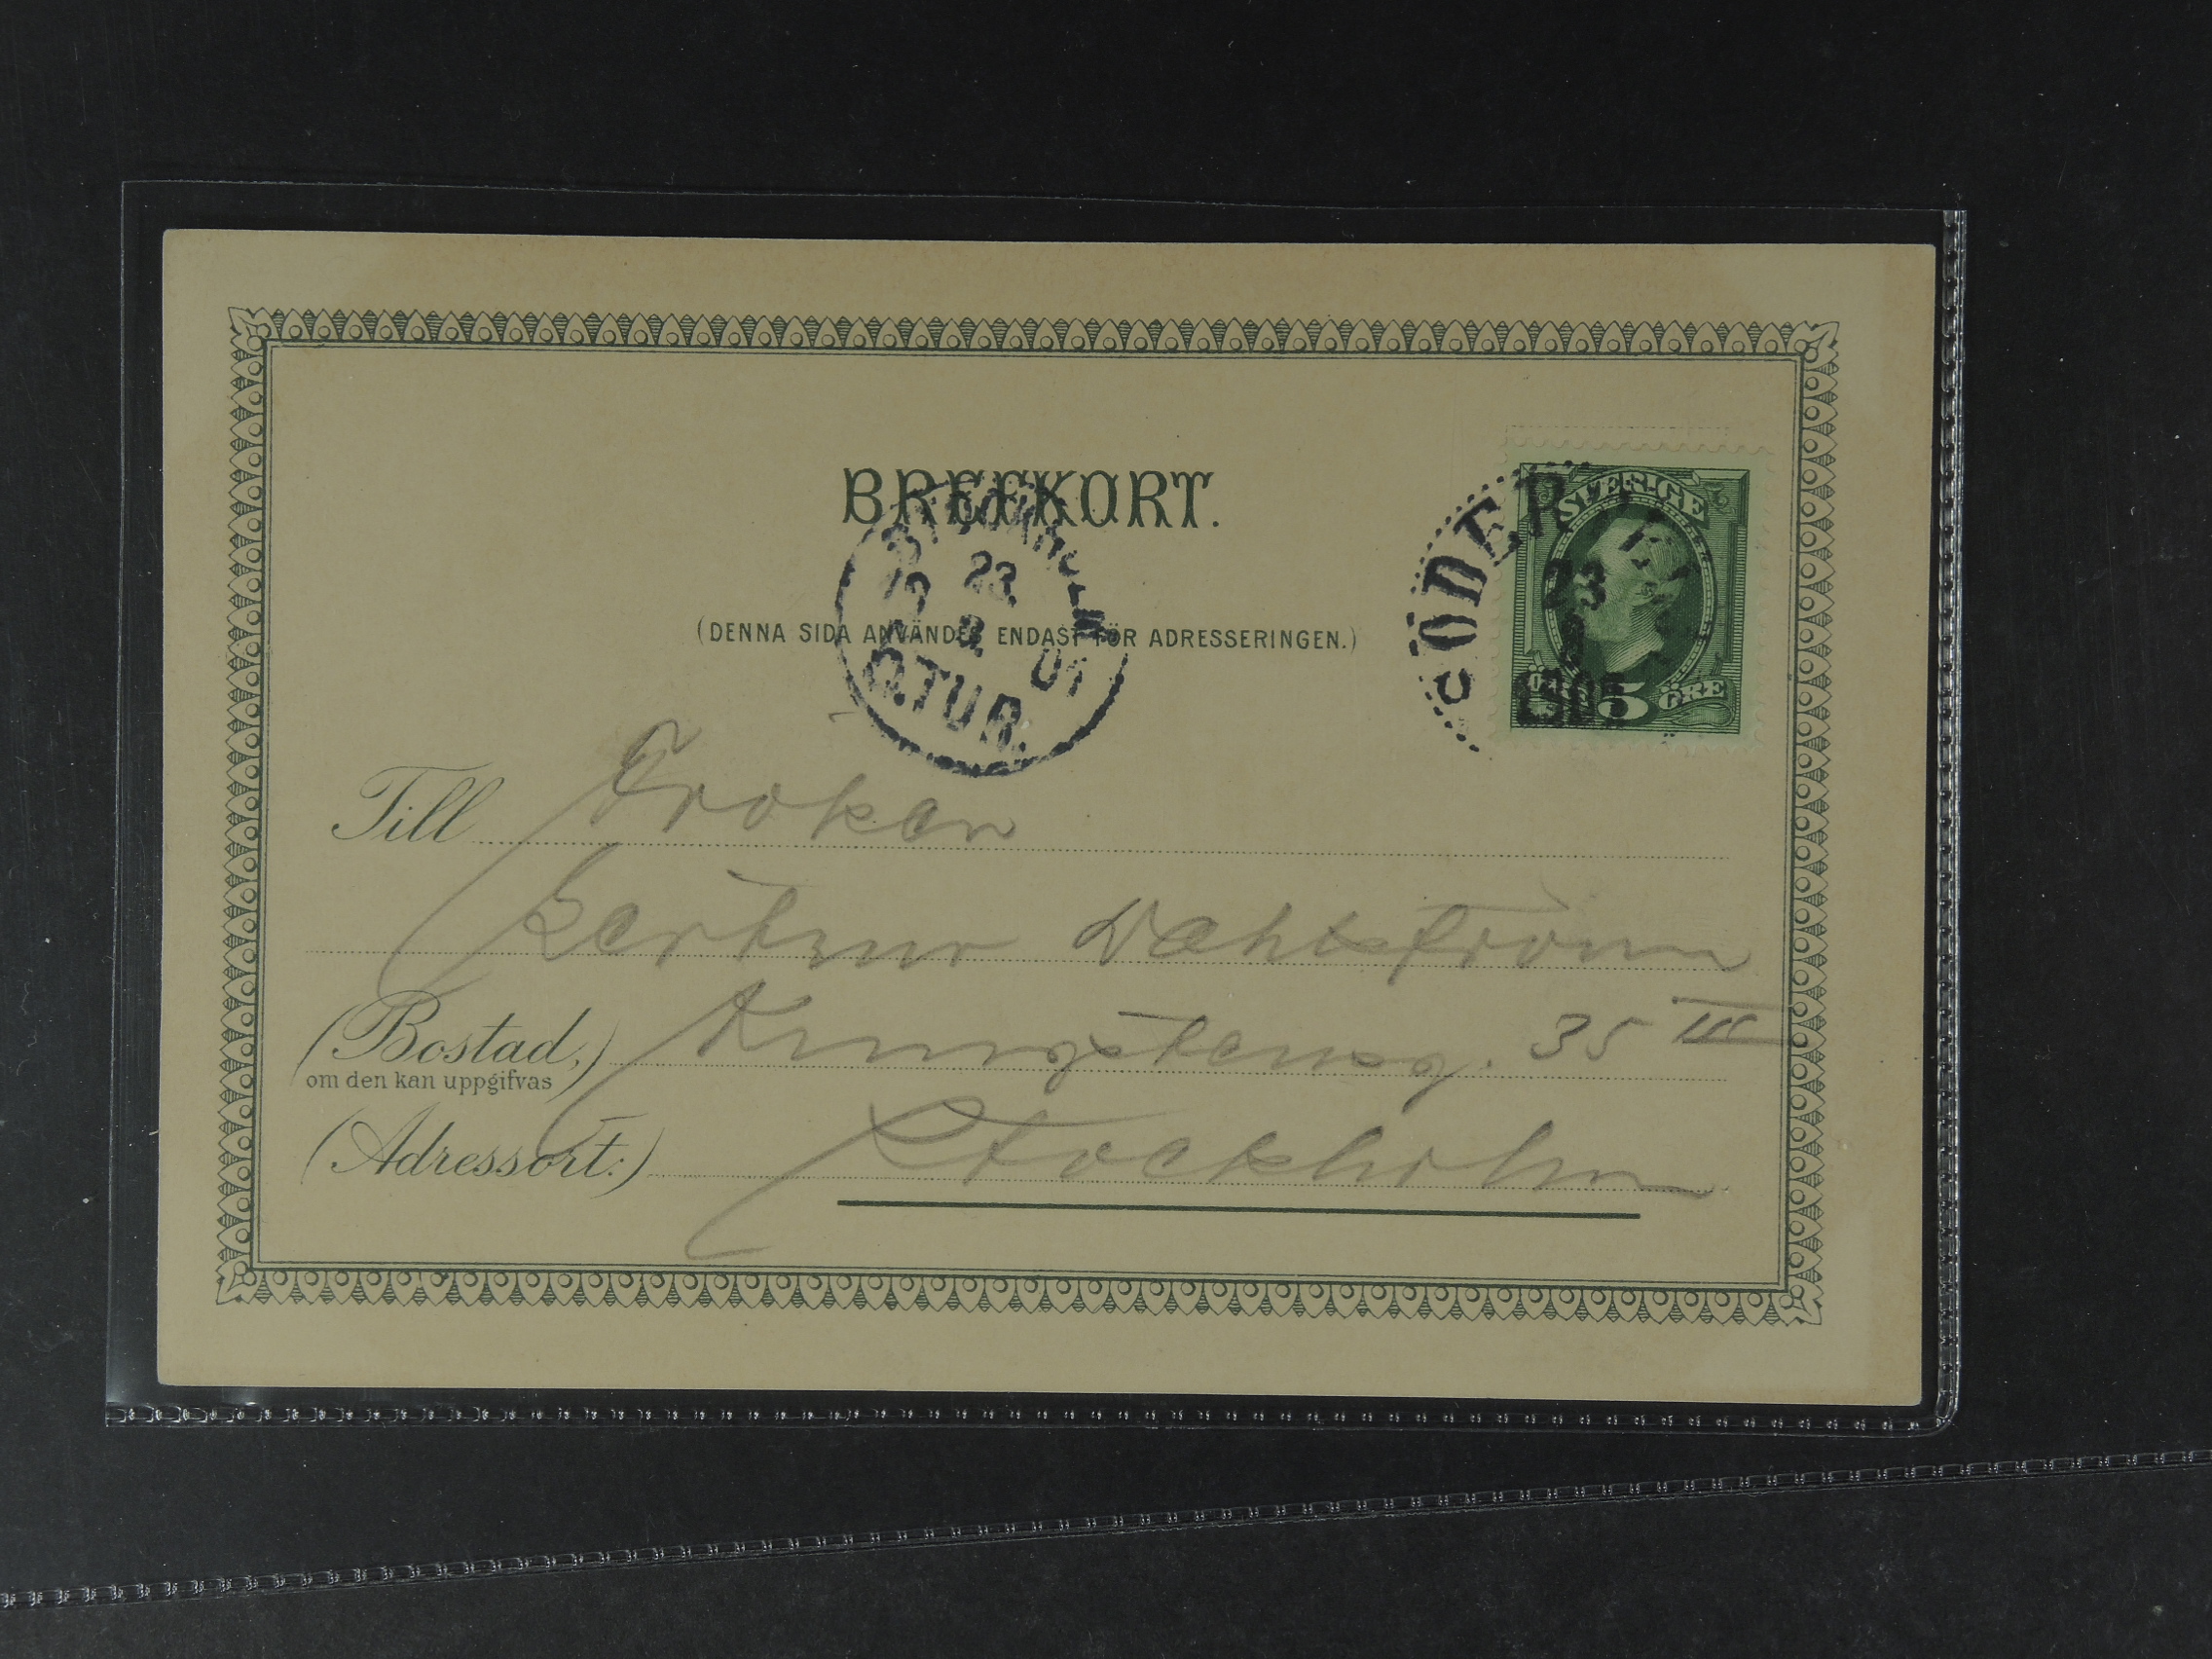 BREFKORT.
(DENNA SIDA ANVÄNDES ENDAST FÖR ADRESSERINGEN.)
STOCKHOLM
23
2
01
TUR.
SÖDER
SVERIGE
23
5 ÖRE
Till Fröken
Dahlström
(Bostad,) Kungstensg. 35 III
om den kan uppgifvas
(Adressort:) Stockholm